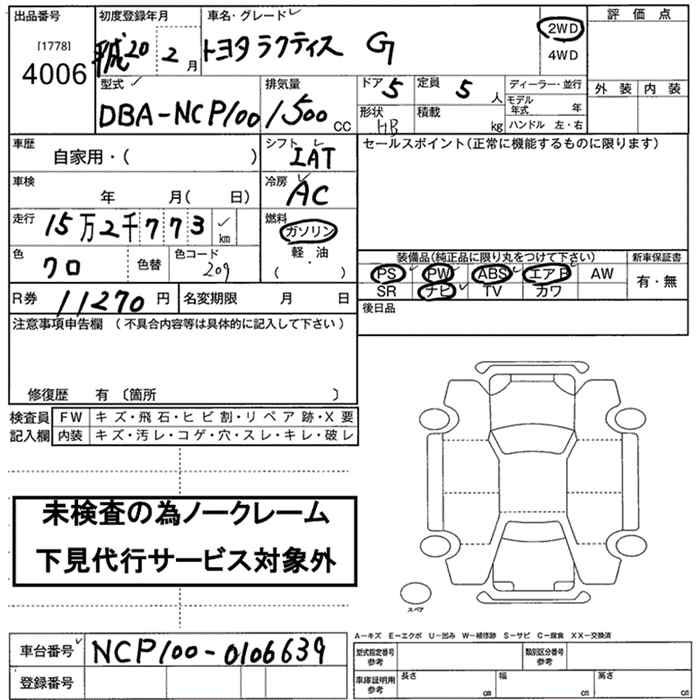 出品番号
[1778]
4006
初度登録年月
平成20年2月
車名・グレード
トヨタラクティス G
2WD
4WD
評価点
外装 内装
型式
DBA-NCP100
排気量
1500 CC
ドア 5
定員 5 人
形状 HB
積載 kg
ディーラー・並行
モデル年式 年
ハンドル 左・右
車歴
自家用・( )
シフト
IAT
セールスポイント(正常に機能するものに限ります)
車検
年 月( 日)
冷房
AC
走行
15万2千773 km
燃料
ガソリン
軽・油
( )
色
クロ
色替
色コード
209
装備品(純正品に限り丸をつけて下さい)
新車保証書
PS PW ABS エアB AW
SR ナビ TV カワ
有・無
R券 11270円
名変期限 月 日
後日品
注意事項申告欄 (不具合内容等は具体的に記入して下さい)
修復歴 有 〔箇所 〕
検査員
記入欄
FW キズ・飛石・ヒビ割・リペア跡・X要
内装 キズ・汚レ・コゲ・穴・スレ・キレ・破レ
未検査の為ノークレーム
下見代行サービス対象外
スペア
A-キズ E-エクボ U-凹み W-補修跡 S-サビ C-腐食 XX-交換済
車台番号
NCP100-0106639
登録番号
型式指定番号
参考
類別区分番号
参考
車庫証明用
参考
長さ cm
幅 cm
高さ cm